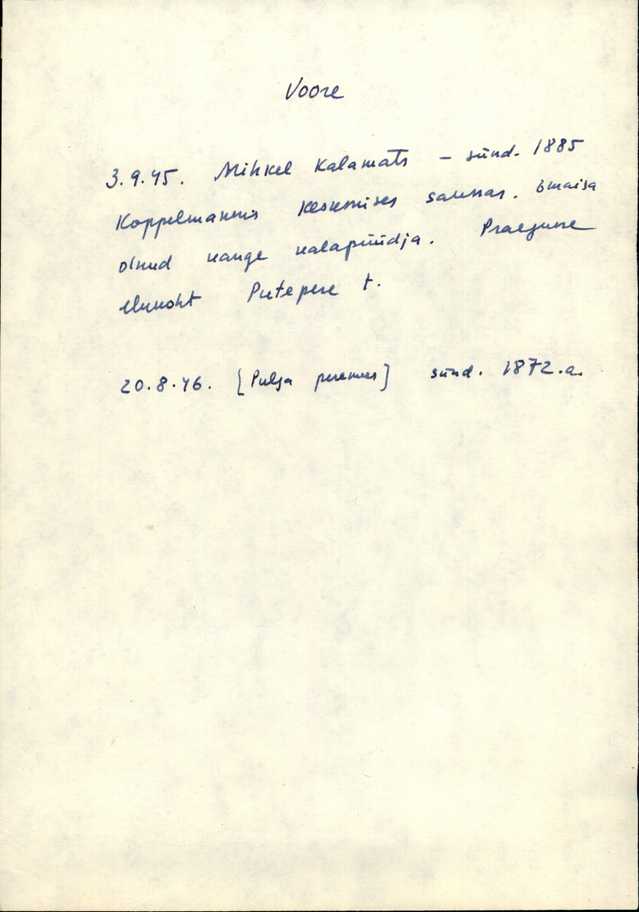 Voore
3.9.45. Mihkel Kalamats – sünd. 1885
Koppelmannis keskmises saunas. Emaisa
olnud kange kalapüüdja. Praegune
elukoht Putepere t.
20.8.46. [Pulja peremees] sünd. 1872.a.